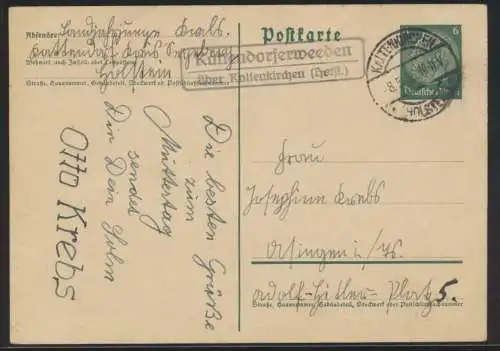 Absender: Landjahrjunge Krebs.
Kattendorf Kreis Segeberg
Wohnort, auch Zustell- oder Leitpostamt
Holstein
Straße, Hausnummer, Gebäudeteil, Stockwerk od. Postschließfachnummer
Postkarte
Kattendorferweeden
über Kaltenkirchen (Holst.)
KALTENKIRCHEN
(HOLSTEIN)
6
Deutsches Reich
Die besten Grüße
zum
Muttertag
sendet
Dir Dein Sohn
Otto Krebs
Frau
Josephine Krebs
Usingen i/Ts.
Adolf-Hitler-Platz 5.
Straße, Hausnummer, Gebäudeteil, Stockwerk oder Postschließfachnummer